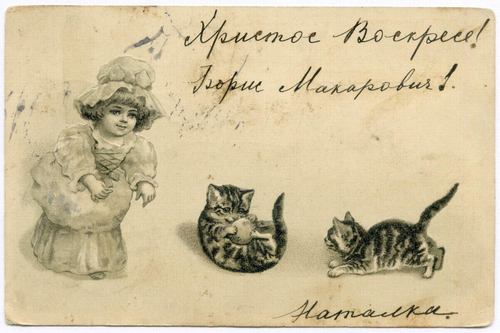 Христос Воскресе!
Борис Макарович!.
Наталка.